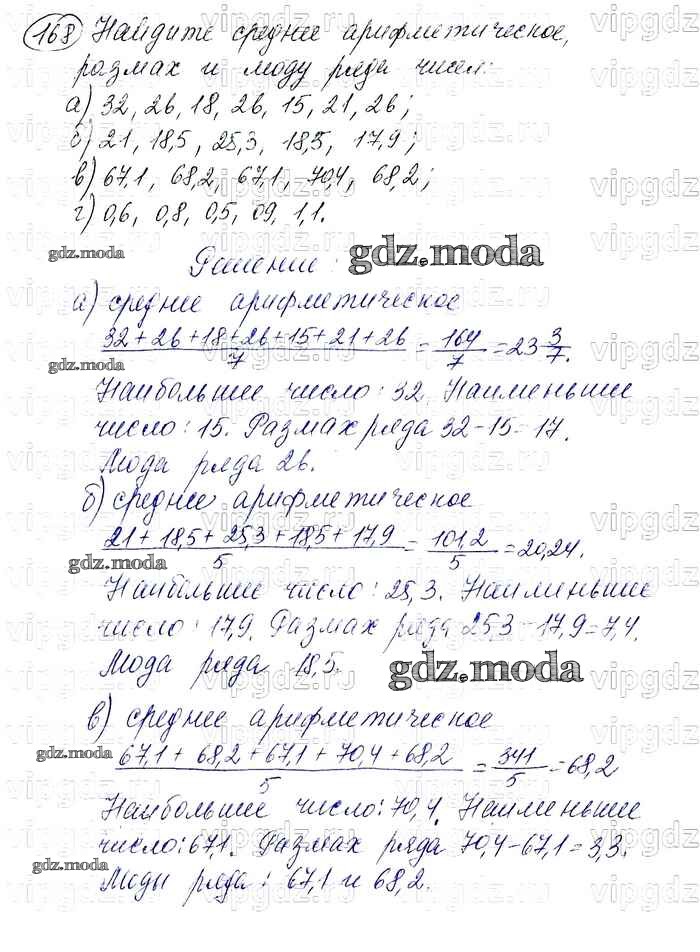 168 Найдите среднее арифметическое,
размах и моду ряда чисел:
а) 32, 26, 18, 26, 15, 21, 26;
б) 21, 18,5, 25,3, 18,5, 17,9;
в) 67,1, 68,2, 67,1, 70,4, 68,2;
г) 0,6, 0,8, 0,5, 09, 1,1.
gdz.moda
Решение:
gdz.moda
а) среднее арифметическое
32+26+18+26+15+21+26/7 = 164/7 = 23 3/7.
gdz.moda
Наибольшее число: 32. Наименьшее
число: 15. Размах ряда 32-15=17.
Мода ряда 26.
б) среднее арифметическое
21+18,5+25,3+18,5+17,9/5 = 101,2/5 = 20,24.
gdz.moda
Наибольшее число: 25,3. Наименьшее
число: 17,9. Размах ряда 25,3-17,9=7,4.
Мода ряда 18,5.
gdz.moda
в) среднее арифметическое
gdz.moda
67,1+68,2+67,1+70,4+68,2/5 = 341/5 = 68,2
Наибольшее число: 70,4. Наименьшее
число: 67,1. Размах ряда 70,4-67,1=3,3.
gdz.moda
Моды ряда: 67,1 и 68,2.
vipgdz.ru